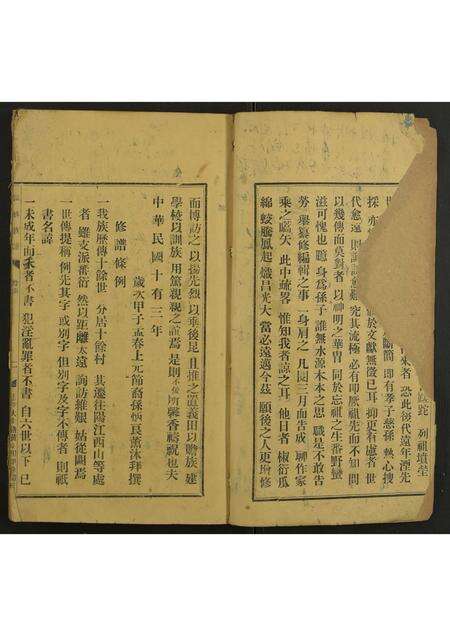 列祖墳堂
來者 恐此後代遠年湮先
世
採 亦 於文獻無徵已耳 抑更有慮者 世
代愈遠 則 究其流極 必有叩厥祖先而不知 問
以幾傳而莫對者 以神明之華冑 同於忘祖之生番野蠻
滋可愧也 身為孫子 誰無水源木本之思 職是不敢告
勞 舉纂修編輯之事 一身肩之 凡閱三月而告成 聊作家
乘之嚆矢 此中疏畧 惟知我者諒之耳 他日者 椒衍瓜
綿 蛟騰鳳起 熾昌光大 當必遠邁今茲 願後之人更增修
而博訪之 以揚先烈 以垂後昆 且推之 義田以贍族 建
學校以訓族 用篤親親之誼焉 是則 所馨香禱祝也夫
中華民國十有三年
歲次甲子孟春上元節裔孫炳良薰沐拜撰
修譜條例
一我族歷傳十餘世 分居十餘村 其遷往陽江西山等處
者 雖支派蕃衍 然以距離太遠 詢訪維艱 姑從闕焉
一世傳提稱 例先其字 或別字 但別字及字不傳者 則祇
書名諱
一未成年而夭者不書 犯淫亂罪者不書 自六世以下 已